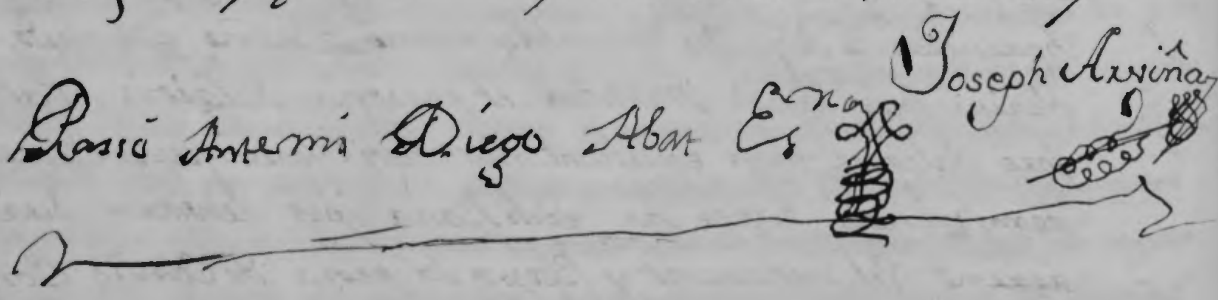 Joseph Arviña
Pasió Antemi Diego Abat Esno